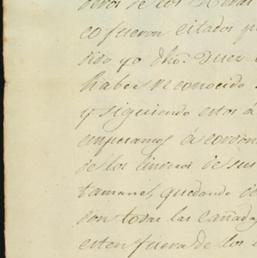 de los
co fueron citados p
sido yo dho. Juez
haber reconocido
y siguiendo estos á
empesamos á cordon
de los linderos de sus
quedando de
don todas las cañada
esten fuera de los